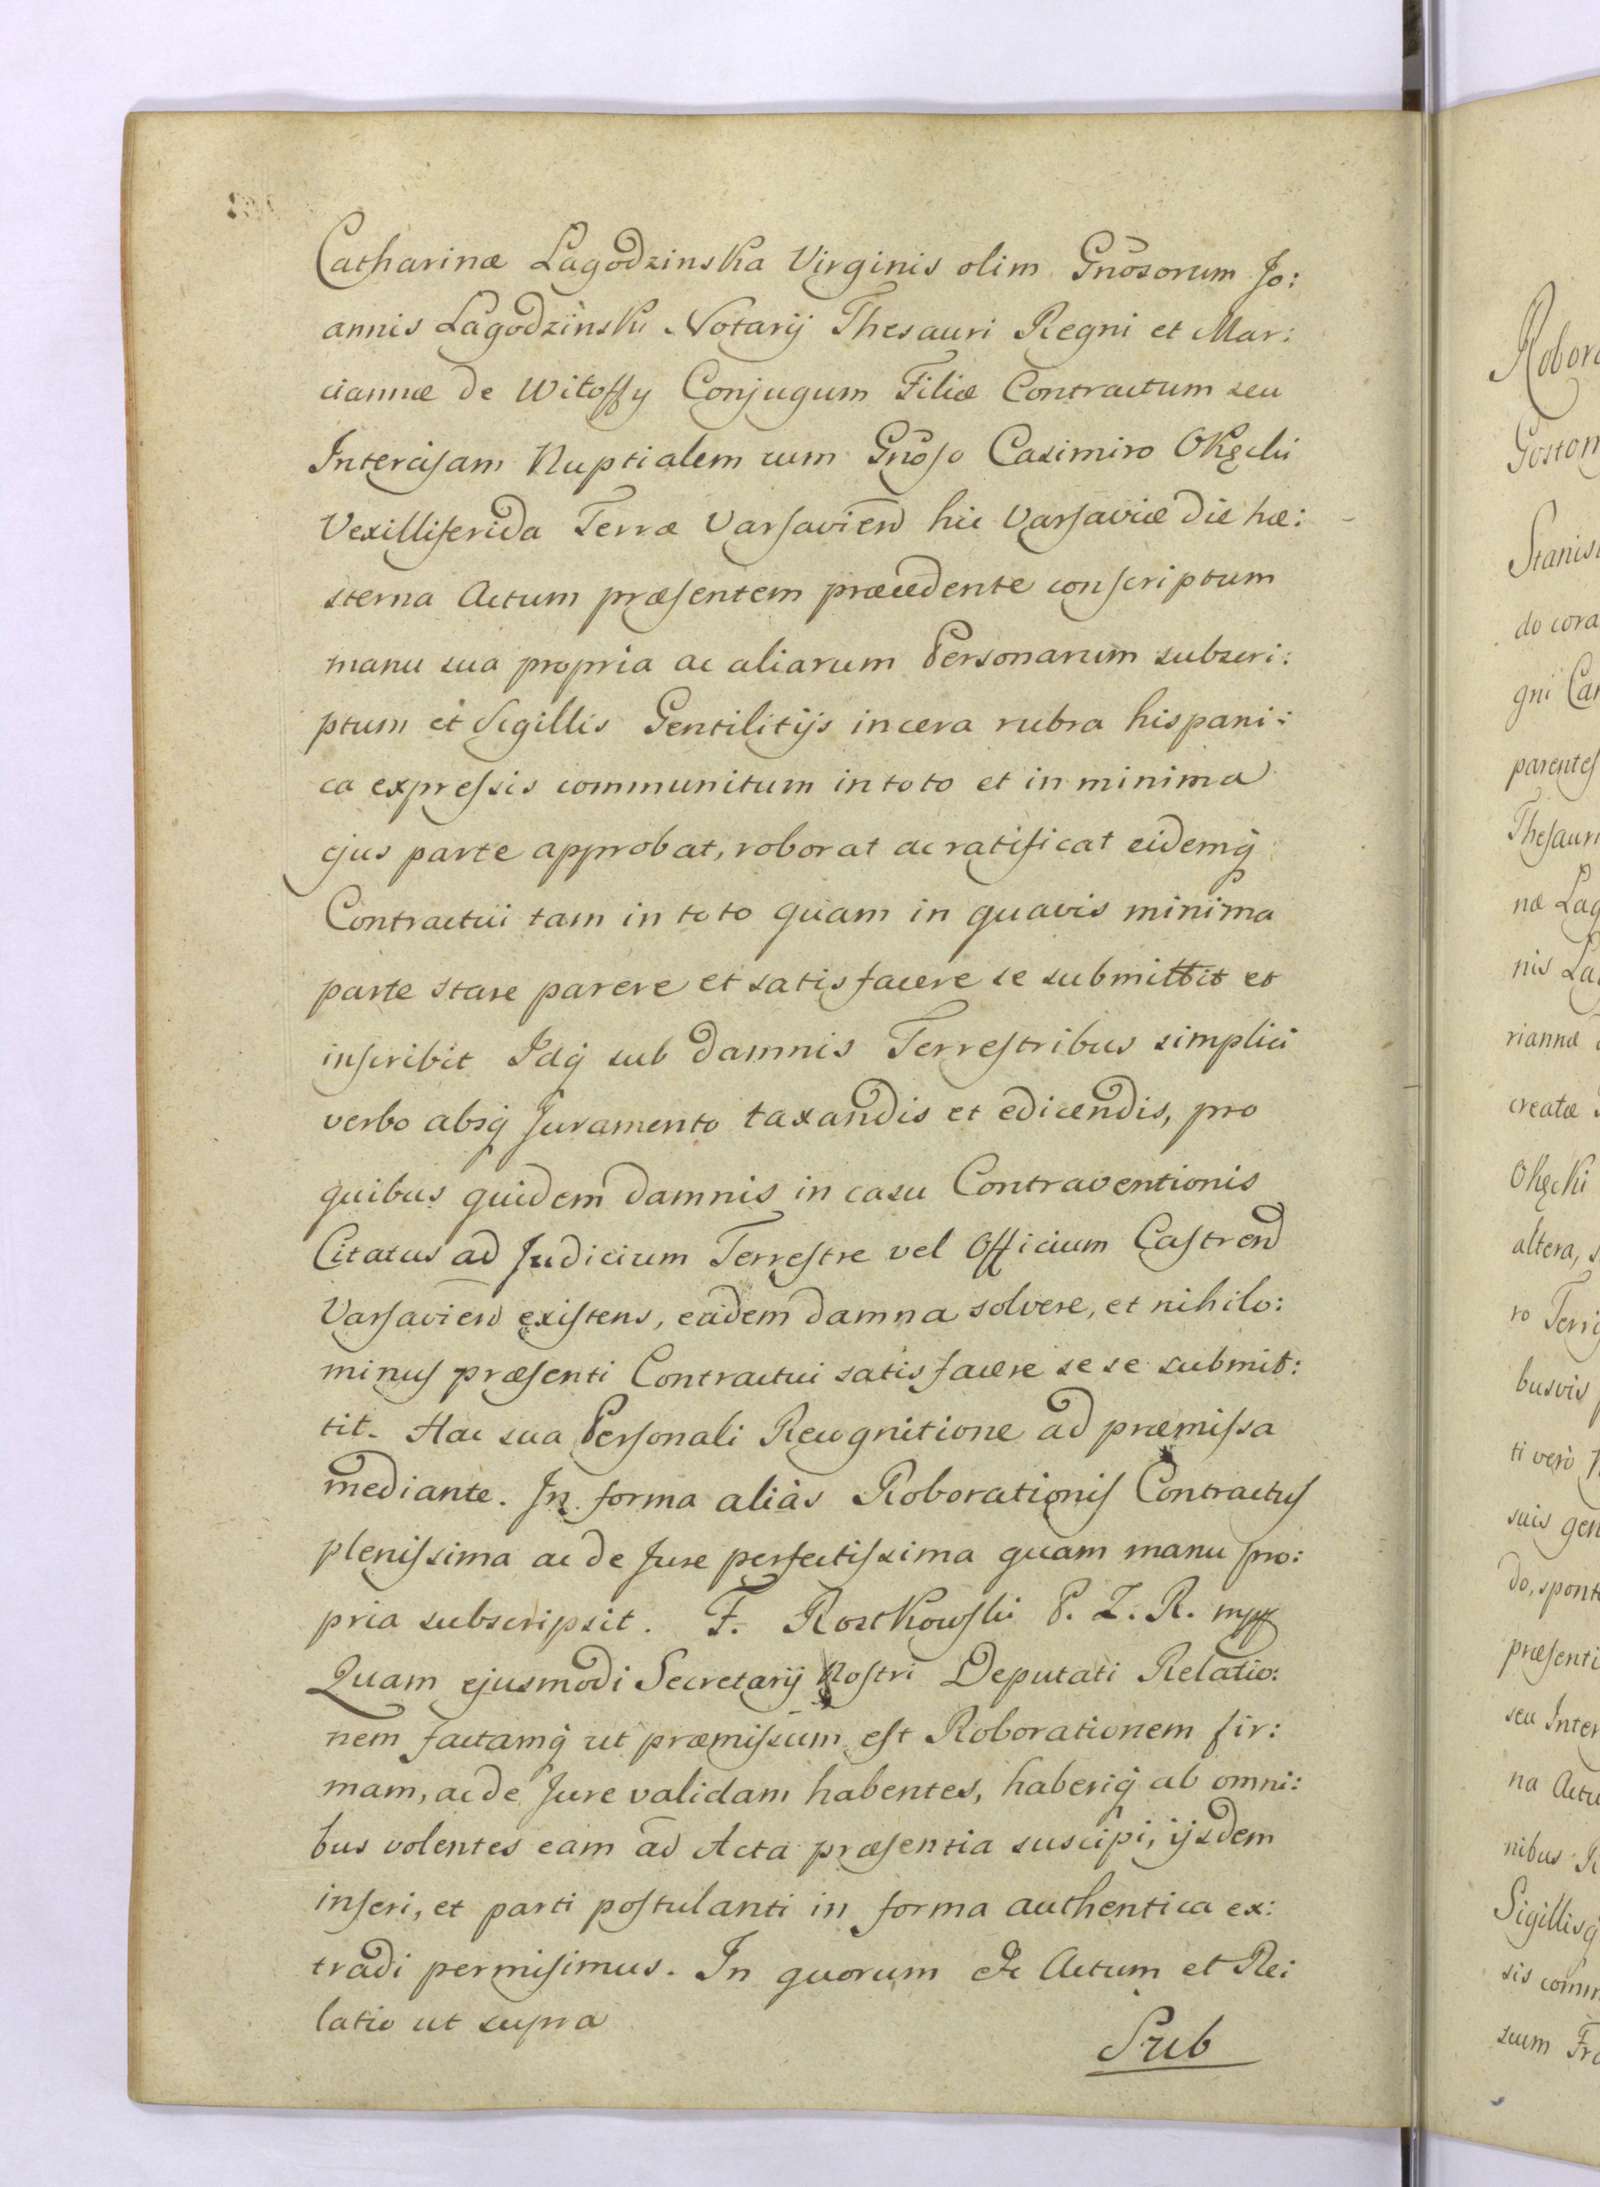 Catharinæ Lagodzinska Virginis olim Gnõsorum Jo:
annis Lagodzinski Notarij Thesauri Regni et Mar:
iannæ de Witoffy Conjugum Filiæ Contractum seu
Intercisam Nuptialem cum Gnõso Casimiro Okęcki
Vexilliferida Terræ Varsavien̄ hic Varsaviæ die hæ:
sterna Actum præsentem præcedente conscriptum
manu sua propria ac aliarum Personarum subscri:
ptum et Sigillis Gentilitijs in cera rubra hispani:
ca expressis communitum in toto et in minima
ejus parte approbat, roborat ac ratificat eidemq̃
Contractui tam in toto quam in quavis minima
parte stare parere et satisfacere se submittit et
inscribit Idq̃ sub damnis Terrestribus simplici
verbo absq̃ Juramento taxandis et edicendis, pro
quibus quidem damnis in casu Contraventionis
Citatus ad Judicium Terrestre vel Officium Castren̄
Varsavien̄ existens, eadem damna solvere, et nihilo:
minus præsenti Contractui satisfacere sese submit:
tit. Hac sua Personali Recognitione ad præmissa
mediante. In forma aliàs Roborationis Contractus
plenissima ac de Jure perfectissima quam manu pro:
pria subscripsit. F. Rostkowski P. Z. R. mpp
Quam ejusmodi Secretarij Nostri Deputati Relatio:
nem factamq̃ ut præmissum est Roborationem fir:
mam, ac de Jure validam habentes, haberiq̃ ab omni:
bus volentes eam ad Acta præsentia suscipi, ijsdem
inseri, et parti postulanti in forma authentica ex:
tradi permisimus. In quorum &c Actum et Re:
latio ut supra
Srub
Robor
Goston
Stanis
do cora
gni Can
parentes
Thesauri
næ Lag
nis Lag
riannæ
creatæ
Okęcki
altera, s
ro Terri
busvis
ti verò
suis gen
do, spont
præsenti
seu Inter
na Actu
nibus
Sigillisq̃
sis comm
suum Fra